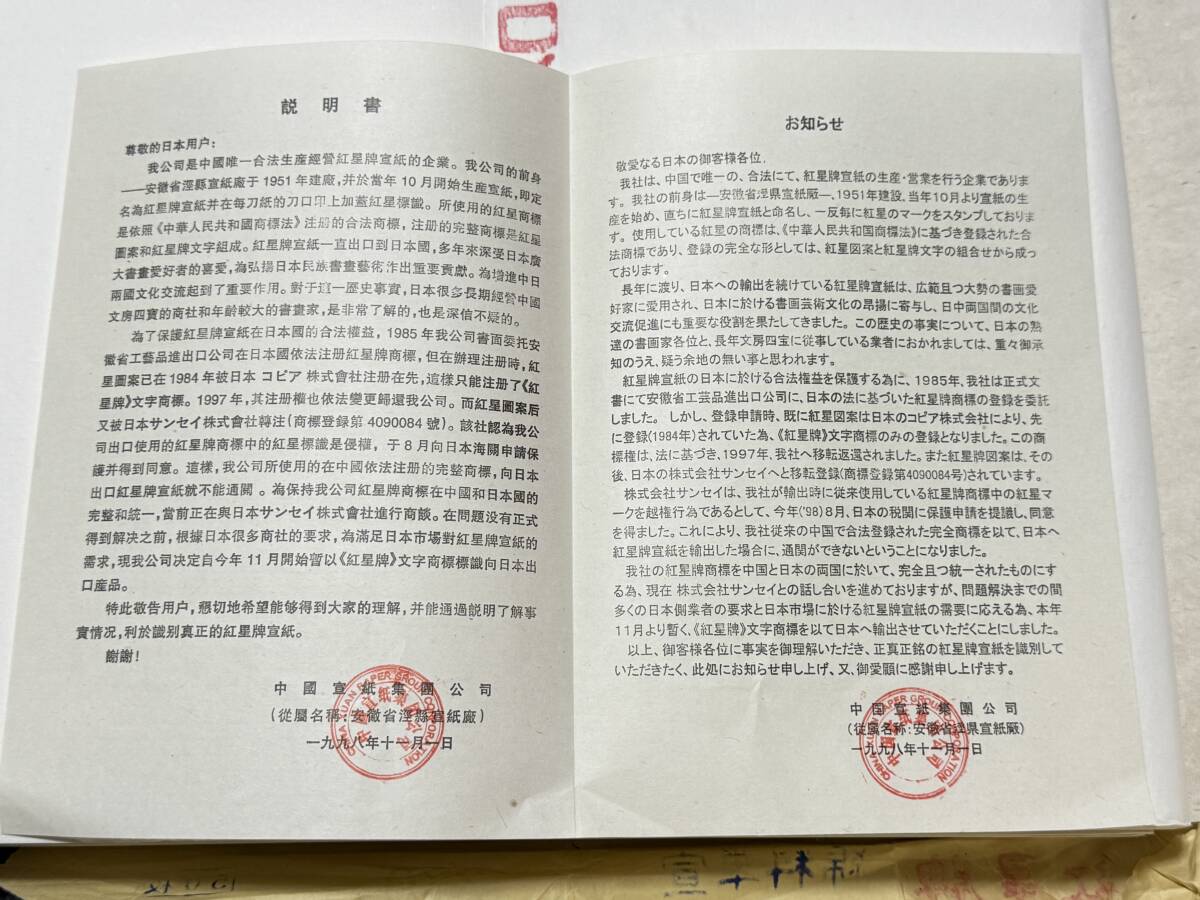 説明書
尊敬的日本用户：
我公司是中國唯一合法生産經營紅星牌宣紙的企業。我公司的前身
——安徽省涇縣宣紙廠于1951年建廠，并於當年10月開始生産宣紙，即定
名為紅星牌宣紙并在每刀紙的刀口印上加蓋紅星標識。所使用的紅星商標
是依照《中華人民共和國商標法》注册的合法商標，注册的完整商標是紅星
圖案和紅星牌文字組成。紅星牌宣紙一直出口到日本國，多年來深受日本廣
大書畫愛好者的喜愛，為弘揚日本民族書畫藝術作出重要貢獻。為增進中日
兩國文化交流起到了重要作用。對于這一歷史事實，日本很多長期經營中國
文房四寶的商社和年齡較大的書畫家，是非常了解的，也是深信不疑的。
為了保護紅星牌宣紙在日本國的合法權益，1985年我公司書面委托安
徽省工藝品進出口公司在日本國依法注册紅星牌商標，但在辦理注册時，紅
星圖案已在1984年被日本 コピア 株式會社注册在先，這樣只能注册了《紅
星牌》文字商標。1997年，其注册權也依法變更歸還我公司。而紅星圖案后
又被日本サンセイ株式會社轉注（商標登録第4090084號）。該社認為我公
司出口使用的紅星牌商標中的紅星標識是侵權，于8月向日本海關申請保
護并得到同意。這樣，我公司所使用的在中國依法注册的完整商標，向日本
出口紅星牌宣紙就不能通関。為保持我公司紅星牌商標在中國和日本國的
完整和統一，當前正在與日本サンセイ株式會社進行商談。在問題没有正式
得到解决之前，根據日本很多商社的要求，為滿足日本市場對紅星牌宣紙的
需求，現我公司决定自今年11月開始暫以《紅星牌》文字商標標識向日本出
口産品。
特此敬告用户，懇切地希望能够得到大家的理解，并能通過説明了解事
實情况，利於識别真正的紅星牌宣紙。
謝謝！
中國宣紙集團公司
（從屬名稱：安徽省涇縣宣紙廠）
一九九八年十一月一日
CHINA XUAN PAPER GROUP CORPORATION
中國宣紙集團公司
お知らせ
敬愛なる日本の御客様各位．
我社は、中国で唯一の、合法にて、紅星牌宣紙の生産・営業を行う企業でありま
す。我社の前身は—安徽省涇県宣紙厰—、1951年建設、当年10月より宣紙の生
産を始め、直ちに紅星牌宣紙と命名し、一反毎に紅星のマークをスタンプしておりま
す。使用している紅星の商標は、《中華人民共和国商標法》に基づき登録された合
法商標であり、登録の完全な形としては、紅星図案と紅星牌文字の組合せから成っ
ております。
長年に渡り、日本への輸出を続けている紅星牌宣紙は、広範且つ大勢の書画愛
好家に愛用され、日本に於ける書画芸術文化の昂揚に寄与し、日中両国間の文化
交流促進にも重要な役割を果たしてきました。この歴史の事実について、日本の熟
達の書画家各位と、長年文房四宝に従事している業者におかれましては、重々御承
知のうえ、疑う余地の無い事と思われます。
紅星牌宣紙の日本に於ける合法権益を保護する為に、1985年、我社は正式文
書にて安徽省工芸品進出口公司に、日本の法に基づいた紅星牌商標の登録を委託
しました。しかし、登録申請時、既に紅星図案は日本のコピア株式会社により、先
に登録(1984年)されていた為、《紅星牌》文字商標のみの登録となりました。この商
標権は、法に基づき、1997年、我社へ移転返還されました。また紅星牌図案は、その
後、日本の株式会社サンセイへと移転登録(商標登録第4090084号)されています。
株式会社サンセイは、我社が輸出時に従来使用している紅星牌商標中の紅星マ
ークを越権行為であるとして、今年('98)8月、日本の税関に保護申請を提議し、同意
を得ました。これにより、我社従来の中国で合法登録された完全商標を以て、日本へ
紅星牌宣紙を輸出した場合に、通関ができないということになりました。
我社の紅星牌商標を中国と日本の両国に於いて、完全且つ統一されたものにす
る為、現在 株式会社サンセイとの話し合いを進めておりますが、問題解決までの間
多くの日本側業者の要求と日本市場に於ける紅星牌宣紙の需要に応える為、本年
11月より暫く、《紅星牌》文字商標を以て日本へ輸出させていただくことにしました。
以上、御客様各位に事実を御理解いただき、正真正銘の紅星牌宣紙を識別して
いただきたく、此処にお知らせ申し上げ、又、御愛顧に感謝申し上げます。
中国宣紙集團公司
（從屬名称：安徽省涇県宣紙厰）
一九九八年十一月一日
CHINA XUAN PAPER GROUP CORPORATION
中國宣紙集團公司